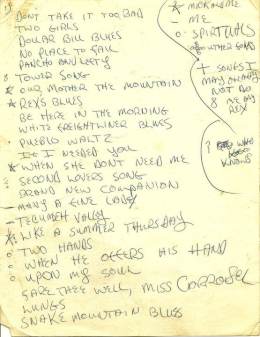 DONT TAKE IT TOO BAD
TWO GIRLS
DOLLAR BILL BLUES
NO PLACE TO FALL
PANCHO AND LEFTY
8 TOWER SONG
* OUR MOTHER THE MOUNTAIN
* REXS BLUES
BE HERE IN THE MORNING
WHITE FREIGHTLINER BLUES
PUEBLO WALTZ
IF I NEEDED YOU
* WHEN SHE DONT NEED ME
SECOND LOVERS SONG
BRAND NEW COMPANION
- MANY A FINE LADY
- TECUMSEH VALLEY
* LIKE A SUMMER THURSDAY
o TWO HANDS
o WHEN HE OFFERS HIS HAND
o UPON MY SOUL
FARE THEE WELL, MISS CARROUSEL
WINGS
SNAKE MOUNTAIN BLUES
*
- ME
o SPIRITUALS
OTHER
+ SONGS I
MAY OR MAY
NOT DO
8 ME
REX
? WHO
KNOWS